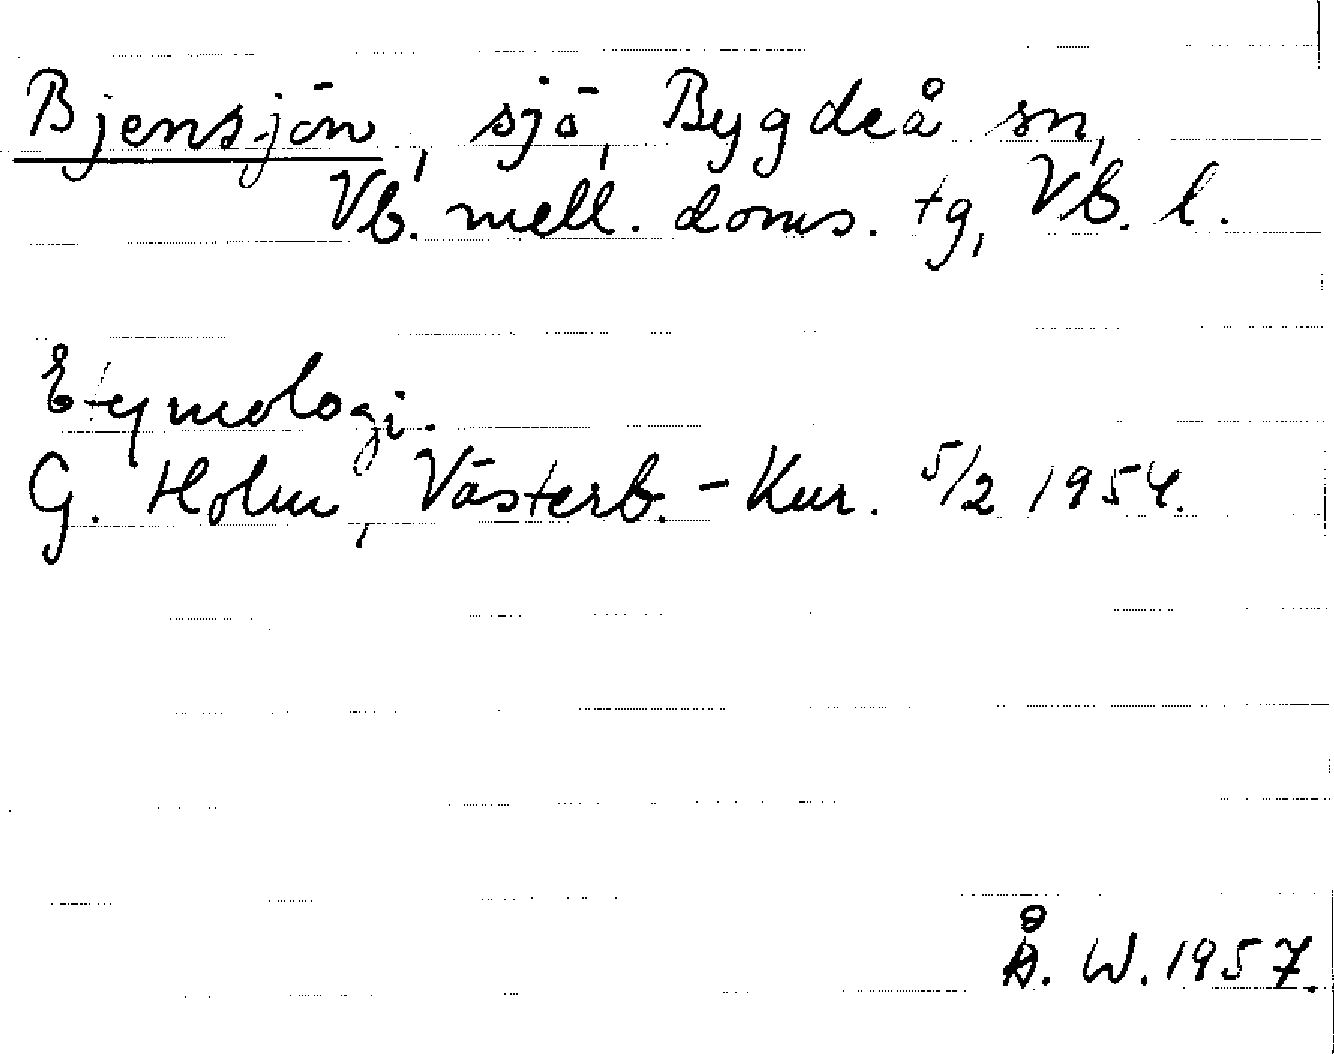 Bjensjön, sjö, Bygdeå sn,
Vb. mell. doms. tg, Vb. l.
Etymologi.
G. Holm, Västerb.-Kur. 5/2 1954.
Å. W. 1957.